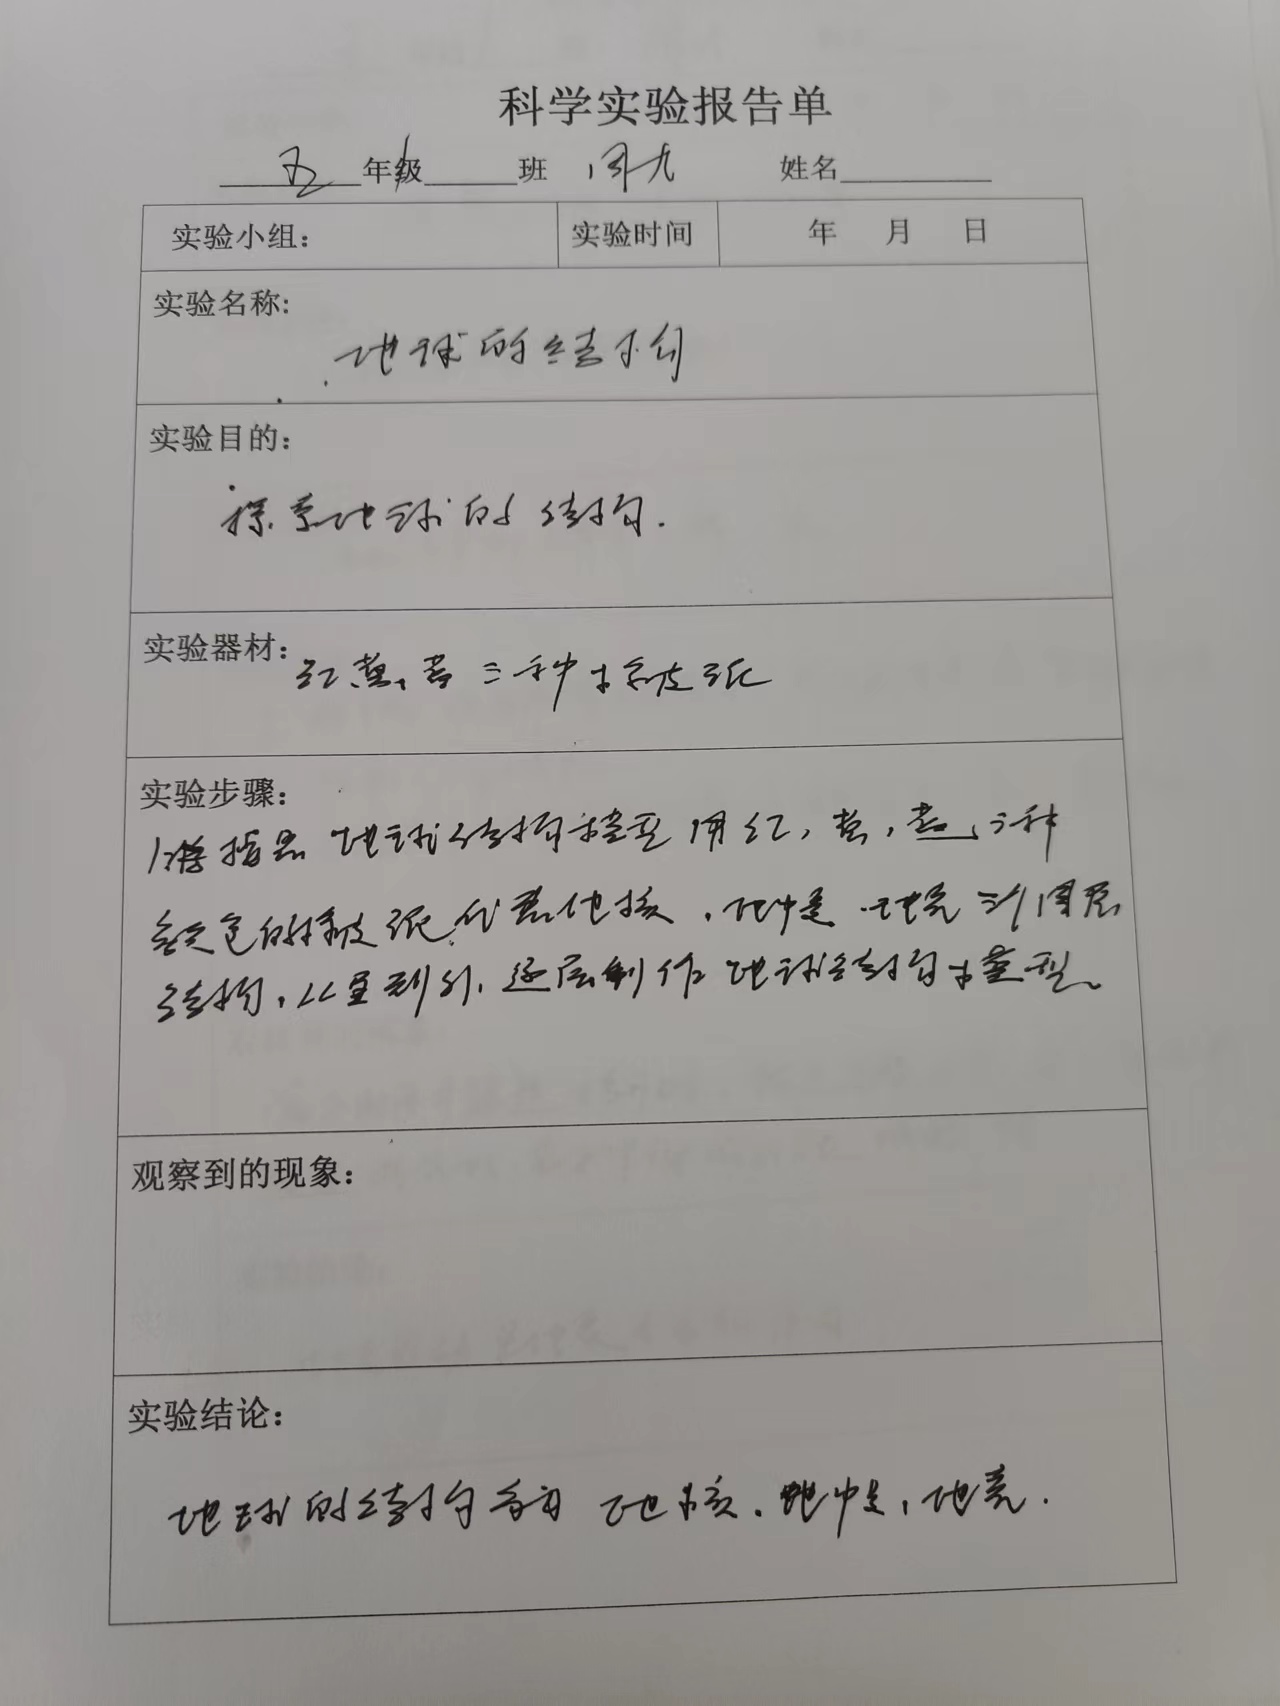 科学实验报告单
五 年级 班 周九 姓名
实验小组： 实验时间 年 月 日
实验名称：
地球的结构
实验目的：
探索地球的结构.
实验器材：
红、黄、蓝三种橡皮泥
实验步骤：
地球结构模型 用红，黄，蓝，三种
颜色的橡皮泥代表地核，地幔，地壳三个圈层
结构，从里到外，逐层制作地球结构模型。
观察到的现象：
实验结论：
地球的结构有 地核．地幔，地壳.